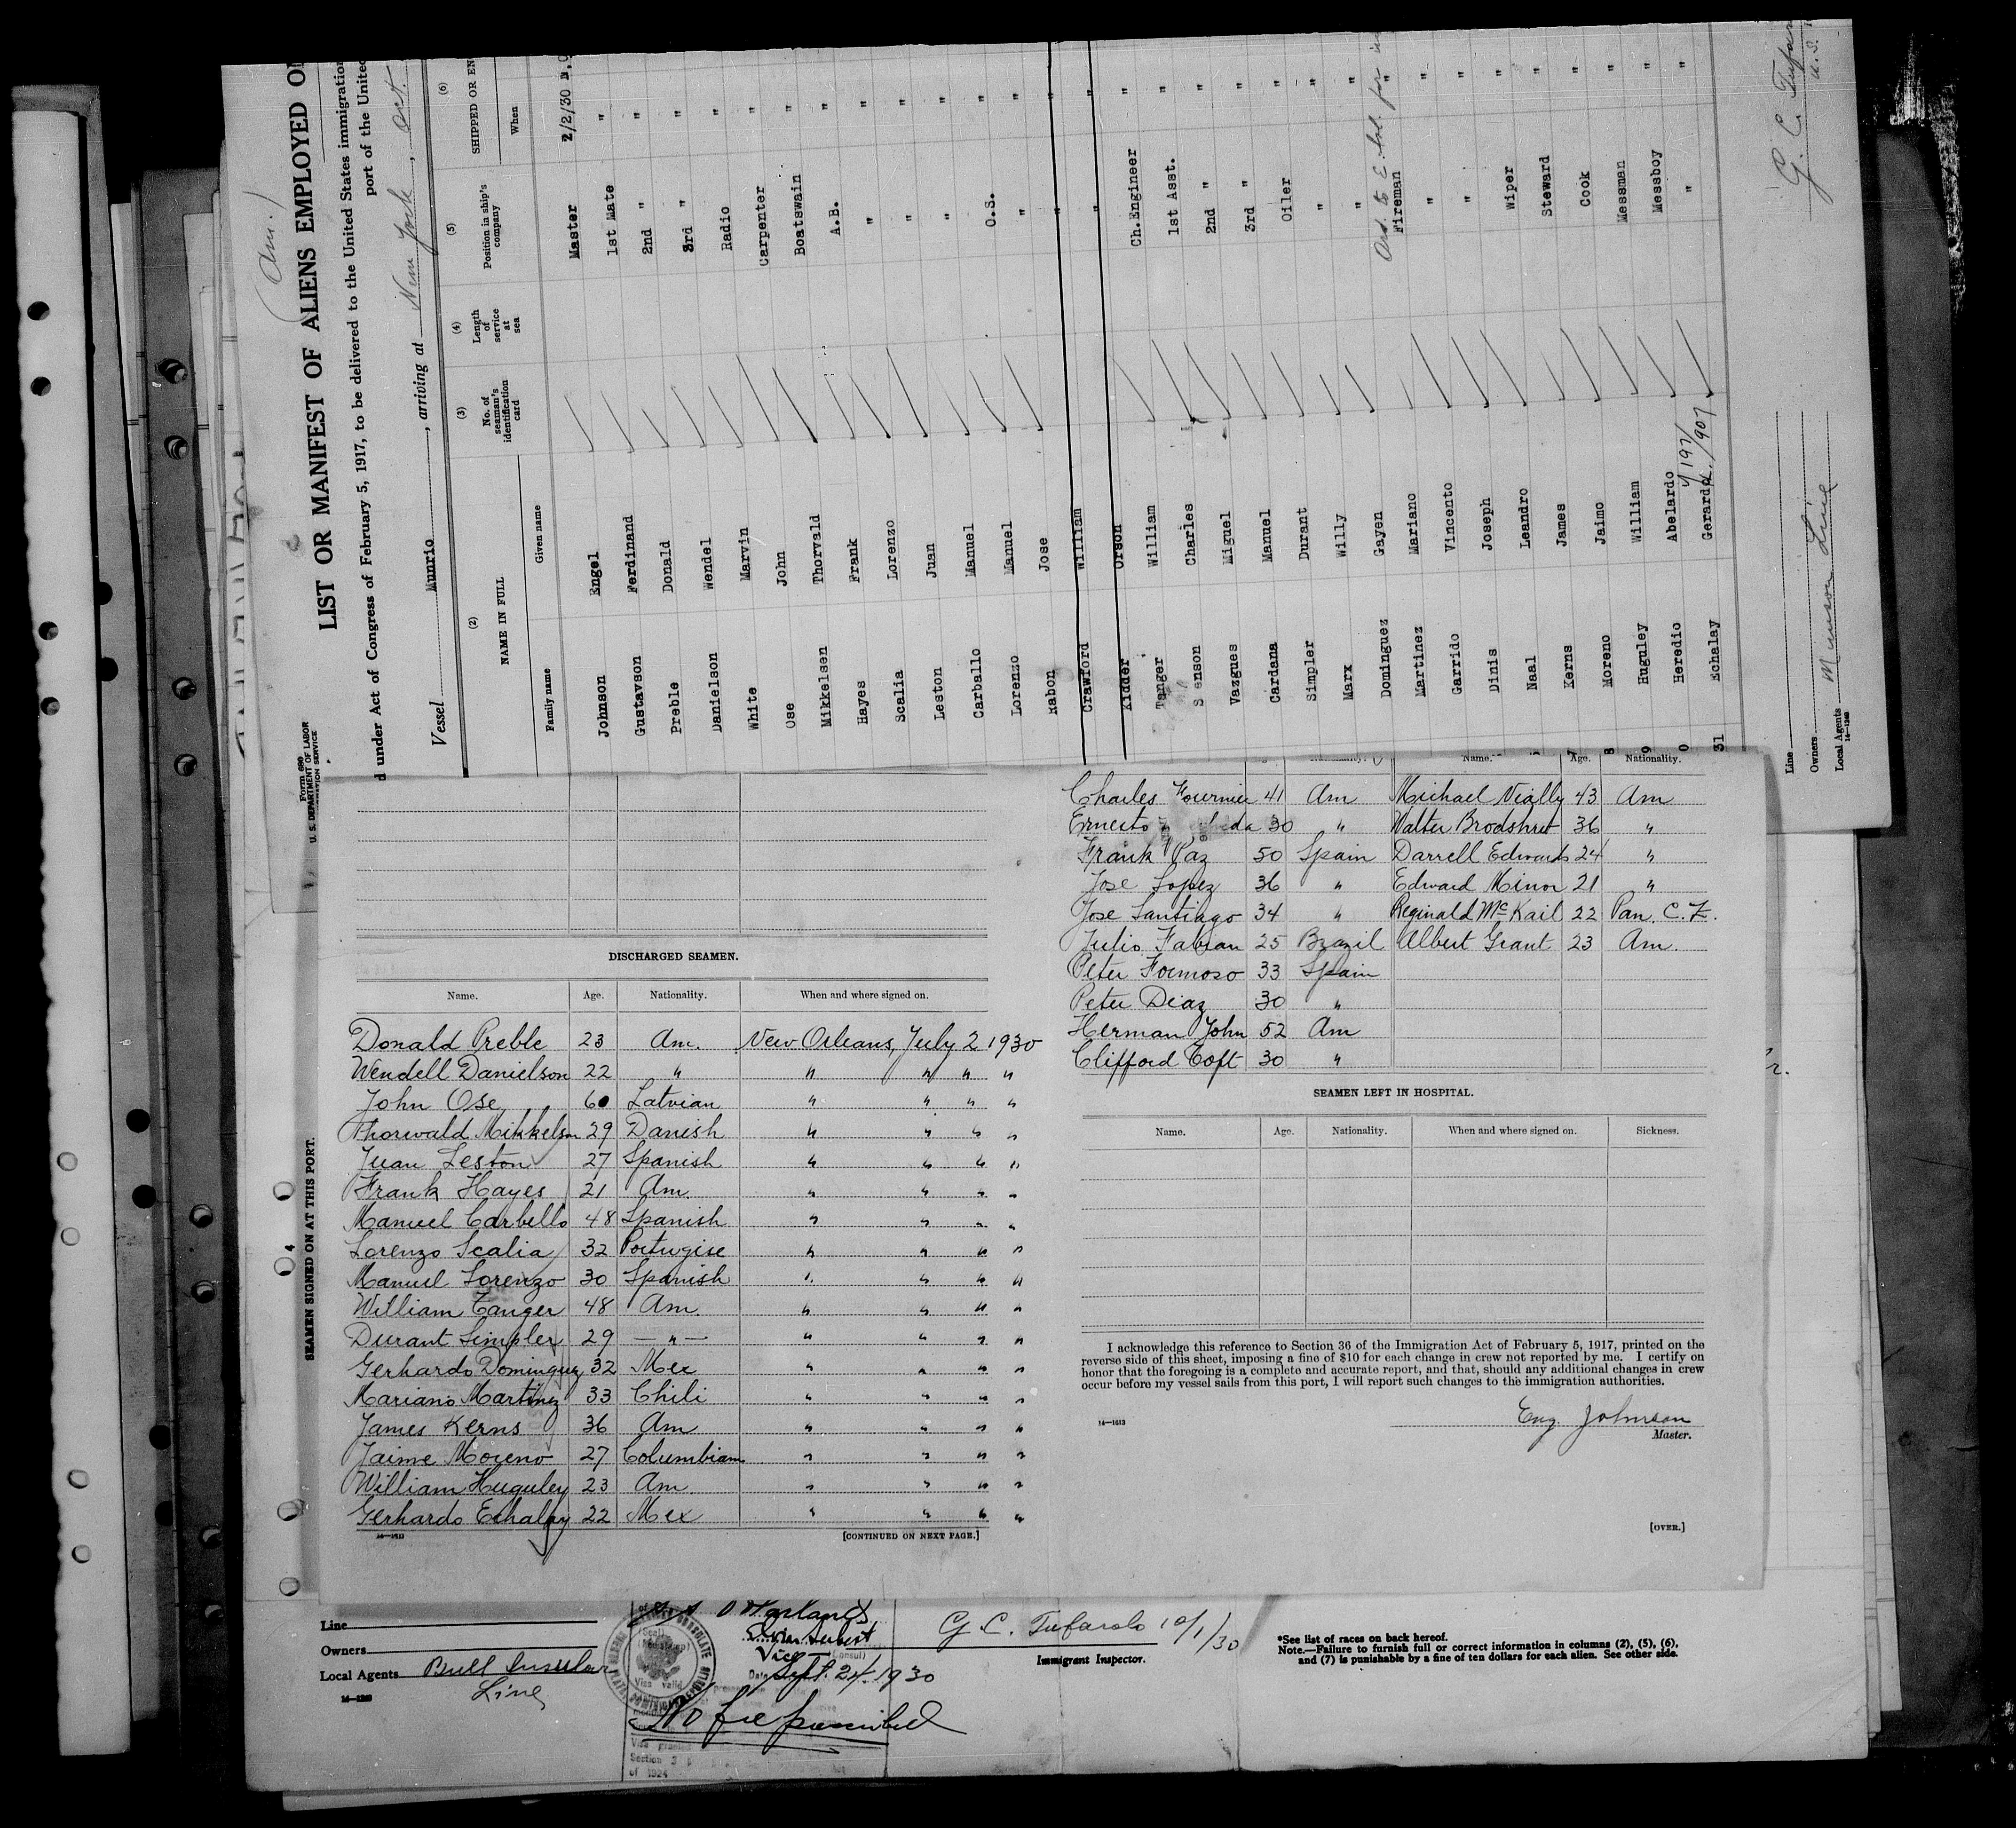 (Am.)
LIST OR MANIFEST OF ALIENS EMPLOYED ON
d under Act of Congress of February 5, 1917, to be delivered to the United States immigration
port of the United
Form 680
U. S. DEPARTMENT OF LABOR
IMMIGRATION SERVICE
Vessel Munrio, arriving at New York, Oct.
(2) (3) (4) (5) (6)
NAME IN FULL No. of seaman's identification card Length of service at sea Position in ship's company SHIPPED OR EN
Family name Given name When
Johnson Engel Master 2/2/30 N.O
Gustavson Ferdinand 1st Mate "
Preble Donald 2nd " "
Danielson Wendel 3rd " "
White Marvin Radio "
Ose John Carpenter "
Mikkelsen Thorvald Boatswain "
Hayes Frank A.B. "
Scalia Lorenzo " "
Leston Juan " "
Carballo Manuel " "
Lorenzo Manuel O.S. "
Rabon Jose " "
Crawford William " "
Kidder Orson " "
Tanger William Ch.Engineer "
S enson Charles 1st Asst. "
Vazgues Miguel 2nd " "
Cardana Manuel 3rd " "
Simpler Durant Oiler "
Marx Willy " "
Dominguez Gayen " "
Martinez Mariano Fireman "
Garrido Vincento " "
Dinis Joseph " "
Naal Leandro Wiper "
Kerns James Steward "
8 Moreno Jaimo Cook "
9 Huguley William Messman "
0 Heredio Abelardo Messboy "
31 Echalay Gerardo " "
Line
Owners Munson Line
Local Agents
14—1240
G. C. Tufar
U.S.
SEAMEN SIGNED ON AT THIS PORT.
4
DISCHARGED SEAMEN.
Name. Age. Nationality. When and where signed on.
Donald Preble 23 Am. New Orleans, July 2 1930
Wendell Danielson 22 " " " " "
John Ose 60 Latvian " " " "
Thorwald Mikkelsen 29 Danish " " " "
Juan Leston 27 Spanish " " " "
Frank Hayes 21 Am. " " " "
Manuel Carbello 48 Spanish " " " "
Lorenzo Scalia 32 Portugise " " " "
Manuel Lorenzo 30 Spanish " " " "
William Tanger 48 Am. " " " "
Durant Simpler 29 — " — " " " "
Gerhardo Dominguez 32 Mex " " " "
Mariano Martinez 33 Chili " " " "
James Kerns 36 Am " " " "
Jaime Moreno 27 Columbian " " " "
William Huguley 23 Am " " " "
Gerhardo Echalay 22 Mex " " " "
[CONTINUED ON NEXT PAGE.]
Age. Name. Age. Nationality.
Charles Fournier 41 Am Michael Vially 43 Am
Ernesto 30 " Walter Brodshret 36 "
Frank Paz 50 Spain Darrell Edwards 24 "
Jose Lopez 36 " Edward Minor 21 "
Jose Santiago 34 " Reginald McKail 22 Pan. C. Z.
Julio Fabian 25 Brazil Albert Grant 23 Am.
Peter Formoso 33 Spain
Peter Diaz 30 "
Herman John 52 Am
Clifford Toft 30 "
SEAMEN LEFT IN HOSPITAL.
Name. Age. Nationality. When and where signed on. Sickness.
I acknowledge this reference to Section 36 of the Immigration Act of February 5, 1917, printed on the
reverse side of this sheet, imposing a fine of $10 for each change in crew not reported by me. I certify on
honor that the foregoing is a complete and accurate report, and that, should any additional changes in crew
occur before my vessel sails from this port, I will report such changes to the immigration authorities.
14—1613
Eng. Johnson
Master.
[OVER.]
Line
Owners
Local Agents Bull Insular
Line
Vice (Consul)
Date Sept. 24. 1930
No fee prescribed
Section 3
of 1924
G. C. Tufarolo 10/1/30
Immigrant Inspector.
*See list of races on back hereof.
Note.—Failure to furnish full or correct information in columns (2), (5), (6),
and (7) is punishable by a fine of ten dollars for each alien. See other side.